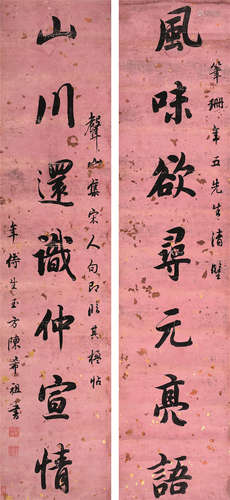 風味欲尋元亮語
筆珊年五先生清鑒
山川還識仲宣情
聲山集宋人句即臨其楹帖
年侍生玉方陳希祖書